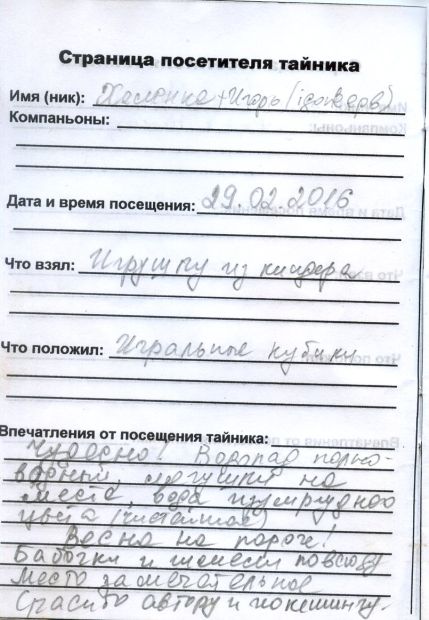 Страница посетителя тайника
Имя (ник): + Игорь
Компаньоны:
Дата и время посещения: 29.02.2016
Что взял: Игрушку из киндера
Что положил: Игральные кубики
Впечатления от посещения тайника:
Чудесно! Водопад полно-
водный, лягушки на
месте, вода изумрудного
цвета
Весна на пороге!
Бабочки и повсюду
Место замечательное
Спасибо автору и